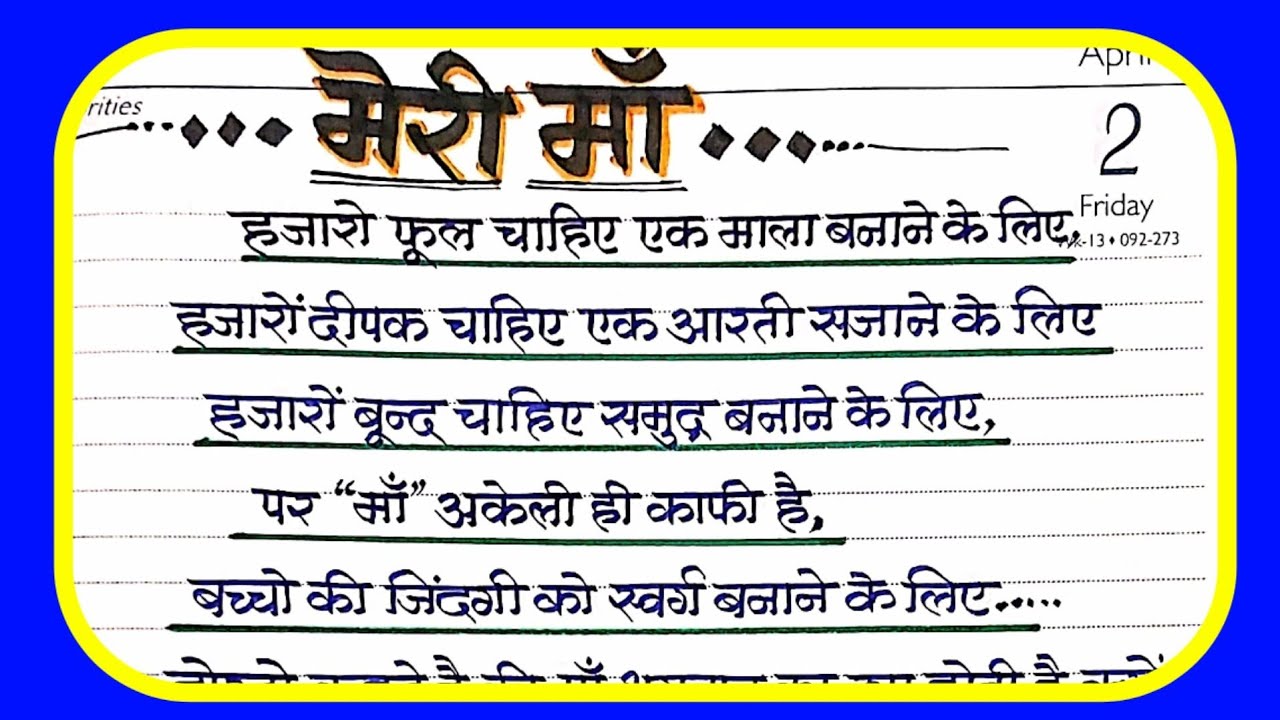 April
rities
मेरी माँ
2
Friday
हजारो फूल चाहिए एक माला बनाने के लिए,
-13 • 092-273
हजारों दीपक चाहिए एक आरती सजाने के लिए
हजारों बून्द चाहिए समुद्र बनाने के लिए,
पर “माँ” अकेली ही काफी है,
बच्चो की जिंदगी को स्वर्ग बनाने के लिए.....